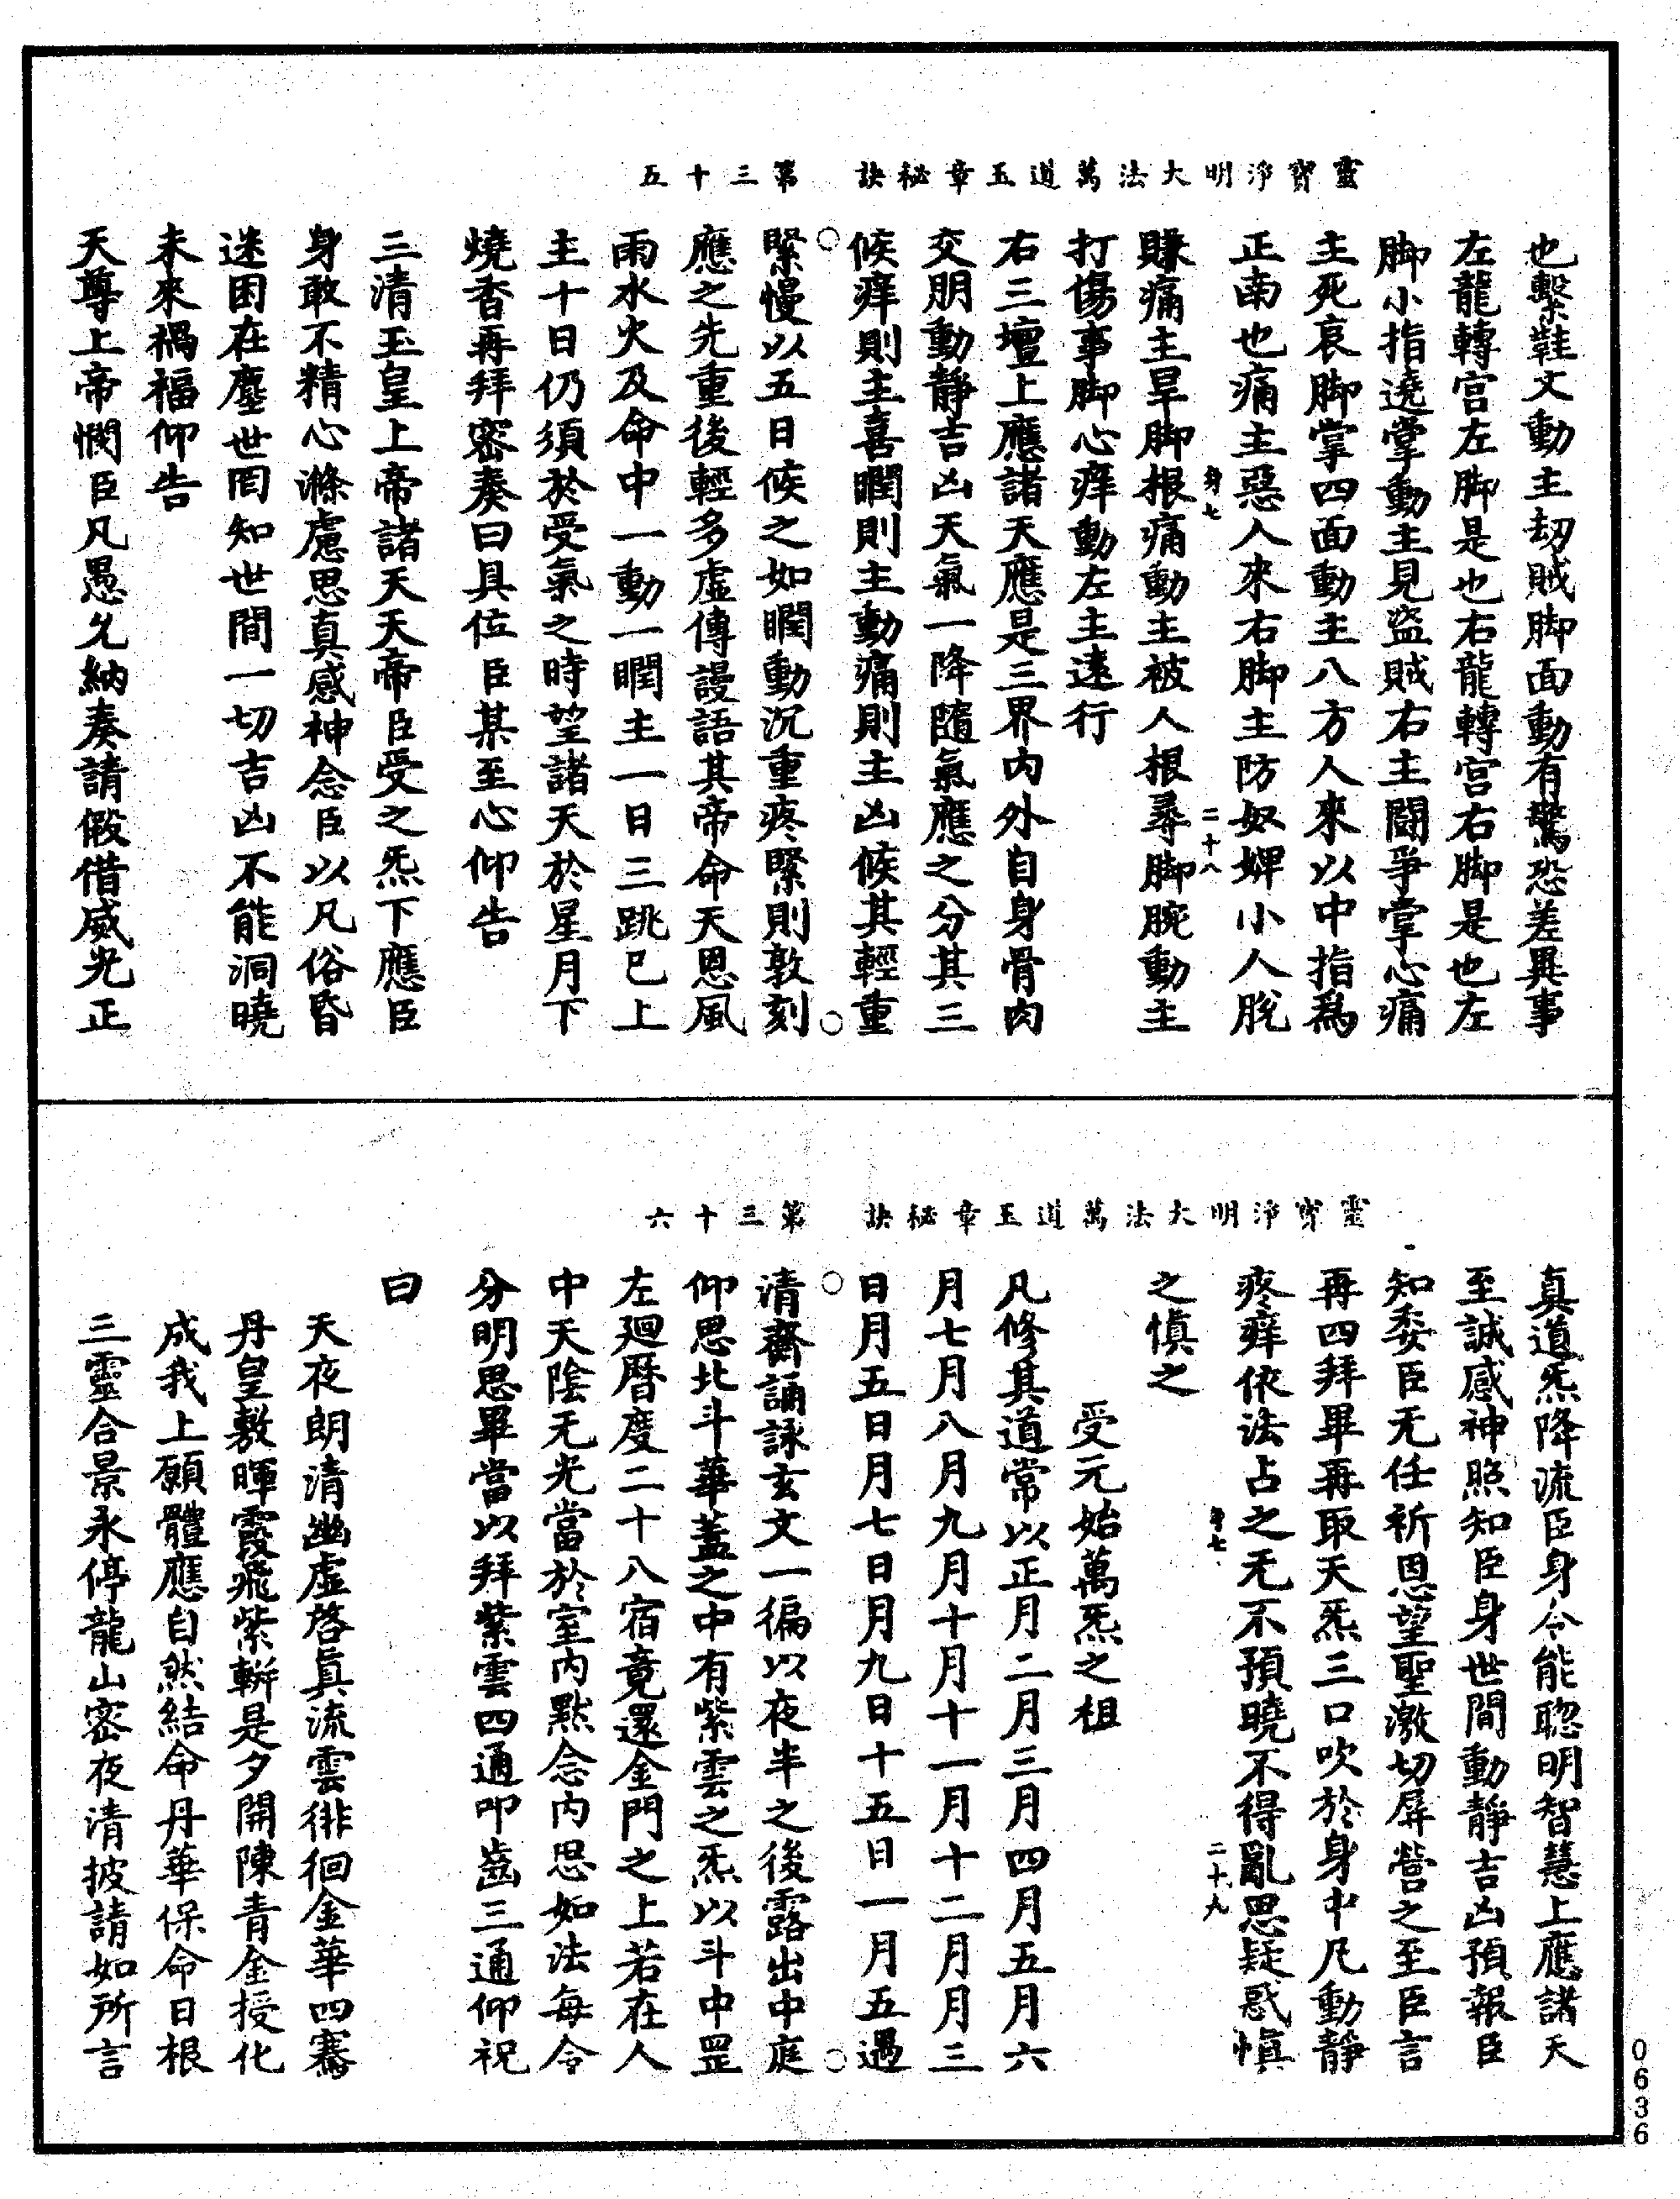 靈寶淨明大法萬道玉章秘訣　第三十五
也繫鞋文動主劫賊脚面動有驚恐差異事
左龍轉宮左脚是也右龍轉宮右脚是也左
脚小指遶掌動主見盜賊右主鬪爭掌心痛
主死哀脚掌四面動主八方人來以中指爲
正南也痛主惡人來右脚主防奴婢小人脫
身七　二十八
賺痛主旱脚根痛動主被人根尋脚腕動主
打傷事脚心痒動左主遠行
右三壇上應諸天應是三界內外自身骨肉
交朋動靜吉凶天氣一降隨氣應之分其三
候痒則主喜瞤則主動痛則主凶候其輕重
緊慢以五日候之如瞤動沉重疼緊則敦刻
應之先重後輕多虛傳謾語其帝命天恩風
雨水火及命中一動一瞤主一日三跳已上
主十日仍須於受氣之時望諸天於星月下
燒香再拜密奏曰具位臣某至心仰告
三清玉皇上帝諸天天帝臣受之炁下應臣
身敢不精心滌慮思真感神念臣以凡俗昏
迷困在塵世罔知世間一切吉凶不能洞曉
未來禍福仰告
天尊上帝憫臣凡愚允納奏請假借威光正
靈寶淨明大法萬道玉章秘訣　第三十六
真道炁降流臣身令能聦明智慧上應諸天
至誠感神照知臣身世間動靜吉凶預報臣
知委臣无任祈恩望聖激切屏營之至臣言
再四拜畢再取天炁三口吹於身中凡動靜
疼痒依法占之无不預曉不得亂思疑惑慎
身七　二十九
之慎之
受元始萬炁之祖
凡修其道常以正月二月三月四月五月六
月七月八月九月十月十一月十二月月三
日月五日月七日月九日十五日一月五遇
清齋誦詠玄文一徧以夜半之後露出中庭
仰思北斗華蓋之中有紫雲之炁以斗中罡
左廻曆度二十八宿竟還金門之上若在人
中天陰无光當於室內默念內思如法每令
分明思畢當以拜紫雲四通叩齒三通仰祝
曰
天夜朗清幽虛啓真流雲徘徊金華四騫
丹皇敷暉霞飛紫軿是夕開陳青金授化
成我上願體應自然結命丹華保命日根
三靈合景永停龍山密夜清披請如所言
0636